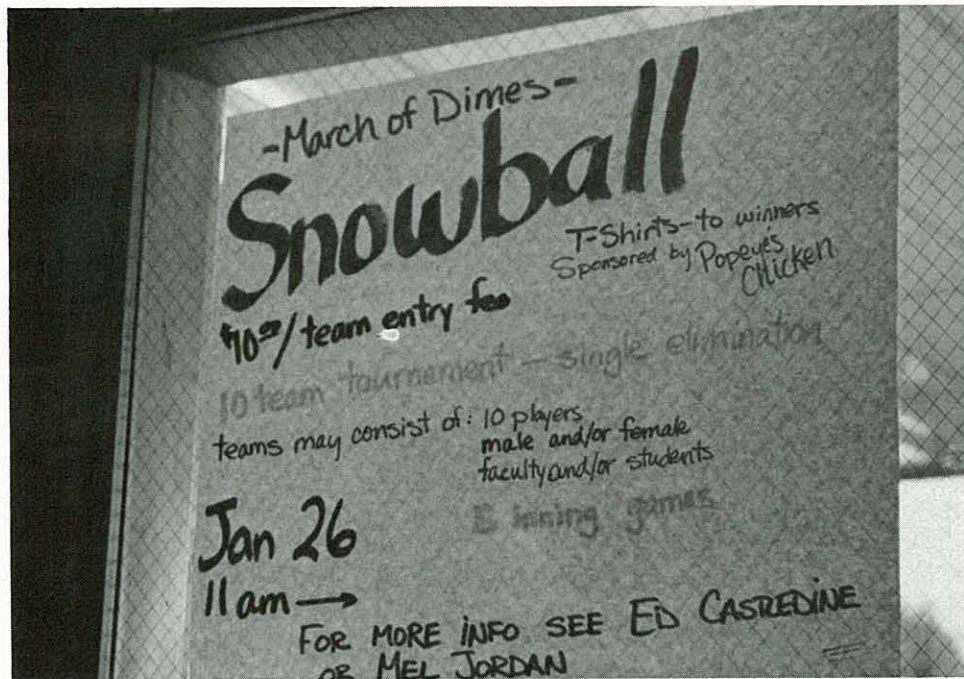 -March of Dimes-
Snowball
T-Shirts-to winners
Sponsored by Popeye's
Chicken
$10.00/team entry fee
10 team tournement - single elimination
teams may consist of: 10 players
male and/or female
faculty and/or students
inning games
Jan 26
11am→
FOR MORE INFO SEE ED CASREDINE
OR MEL JORDAN